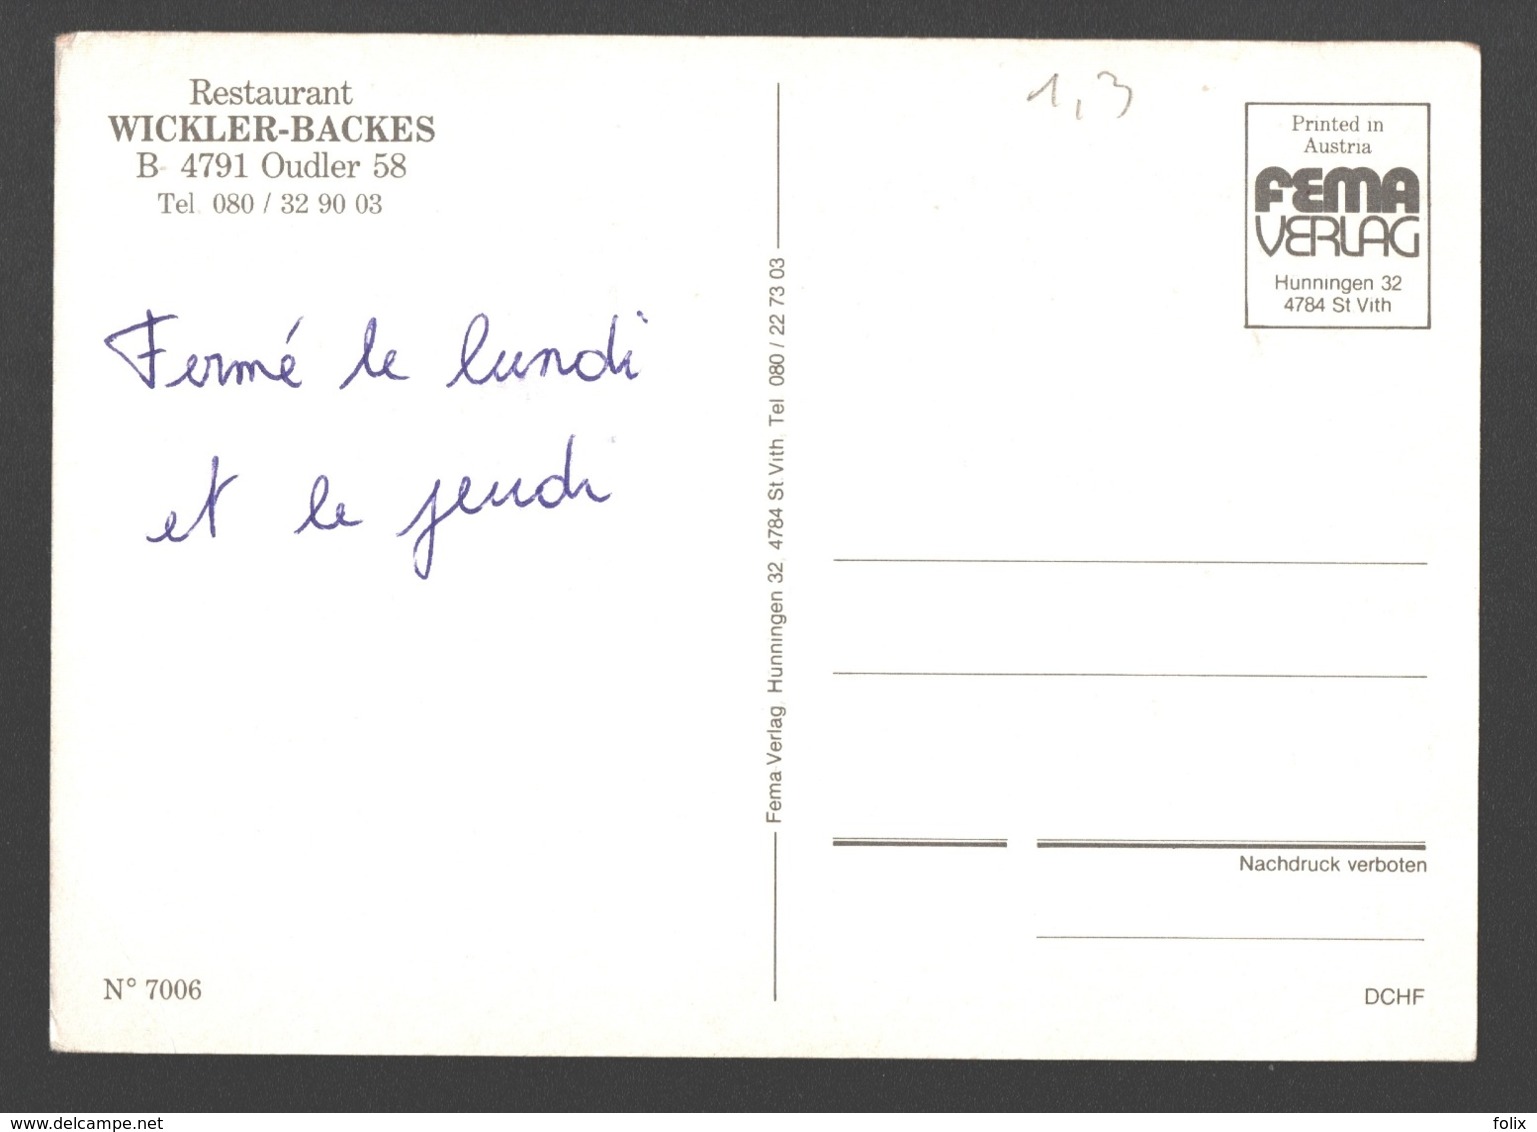 Restaurant
WICKLER-BACKES
B- 4791 Oudler 58
Tel. 080 / 32 90 03
Fermé le lundi
et le jeudi
N° 7006
Fema-Verlag, Hunningen 32, 4784 St. Vith, Tel 080 / 22 73 03
1,3
Printed in
Austria
FEMA
VERLAG
Hunningen 32
4784 St Vith
Nachdruck verboten
DCHF
www.delcampe.net
felix